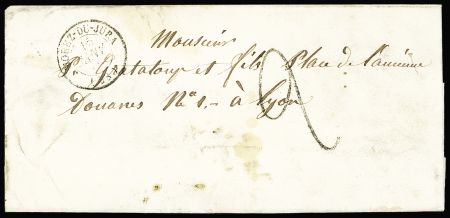 MOREZ-DU-JURA
Monsieur
P. Grataloup et fils Place de l'ancienne
Douanes No 1. - à Lyon
2